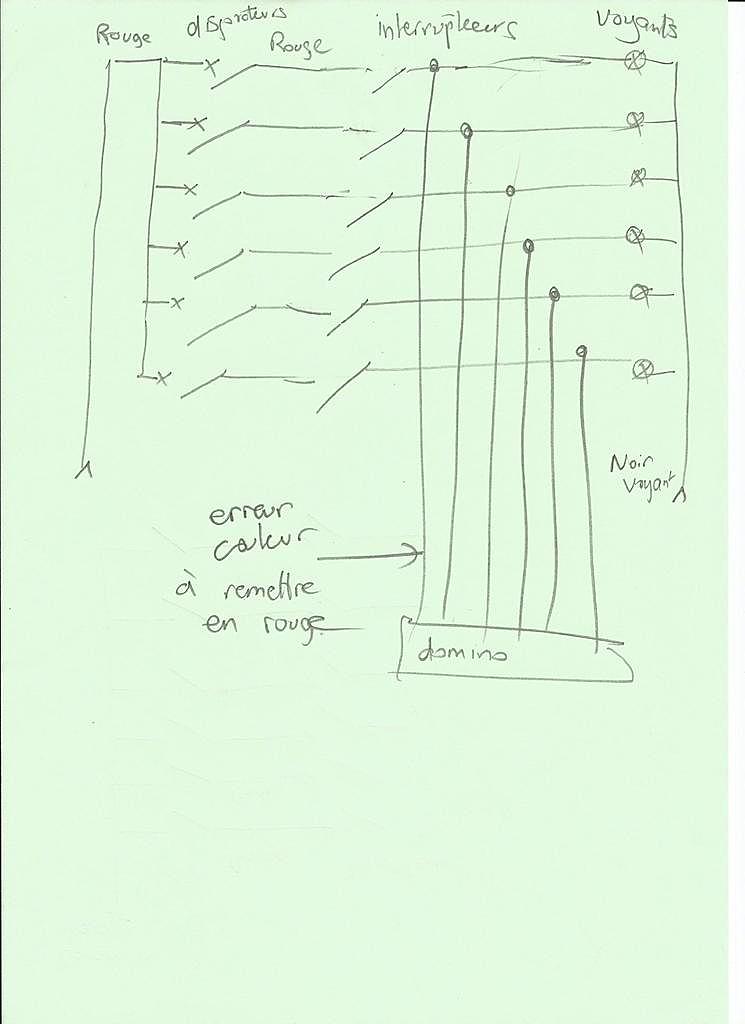 Rouge
disjoncteurs
Rouge
interrupteurs
Voyants
Noir
Voyant
erreur
couleur
à remettre
en rouge
domino